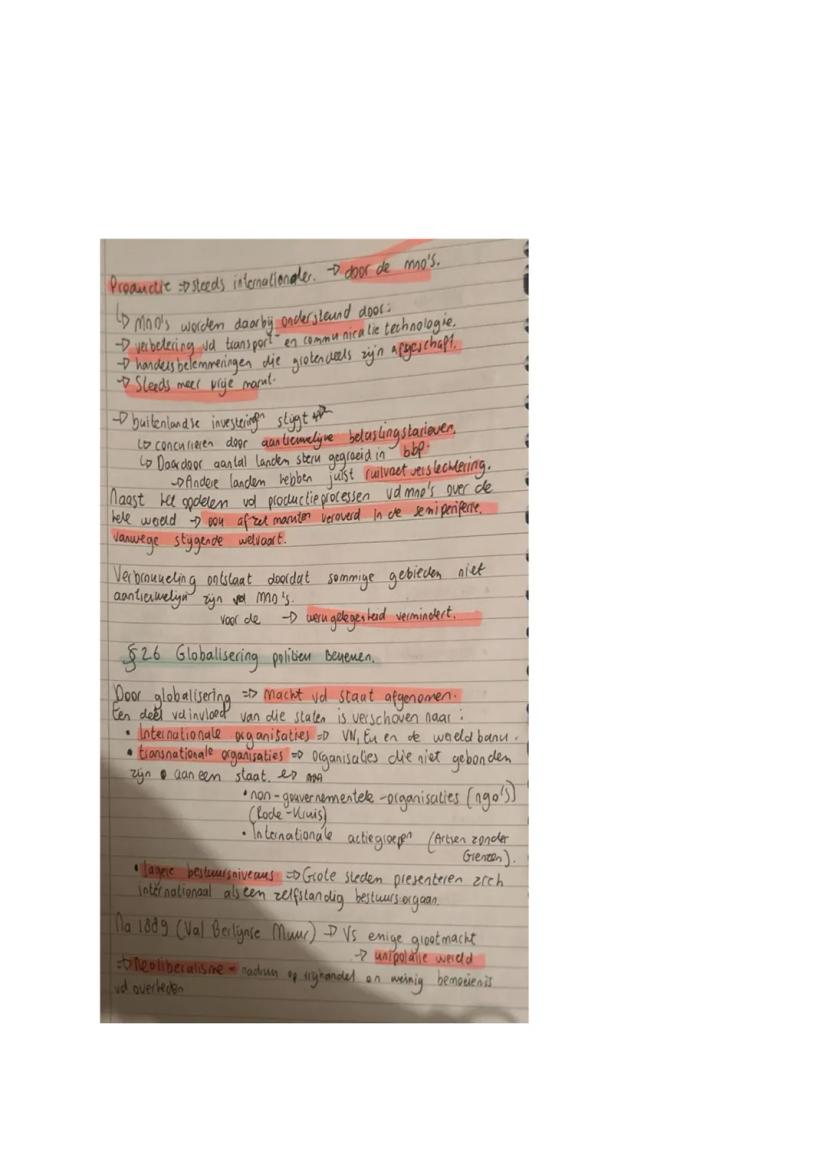 Productie => steeds internationaler. -> door de mno's.
↳ mno's worden daarbij ondersteund door:
-> verbetering vd transport- en communicatie technologie.
-> handelsbelemmeringen die grotendeels zijn afgeschaft.
-> Steeds meer vrije markt.
-> buitenlandse investeringen stijgt
↳ concurreren door aantrekkelijke belastingstarieven.
↳ Daardoor aantal landen sterk gegroeid in bbp.
-> Andere landen hebben juist ruilvoetverslechtering.
Naast het opdelen vd productieprocessen vd mno's over de
hele wereld -> ook afzet markten veroverd in de semiperiferie.
vanwege stijgende welvaart.
Verbrokkeling ontstaat doordat sommige gebieden niet
aantrekkelijk zijn mno's.
voor de -> werkgelegenheid vermindert.
§2.6 Globalisering politiek bekeken.
Door globalisering => macht vd staat afgenomen.
Een deel vd invloed van die staten is verschoven naar:
• Internationale organisaties => VN, Eu en de wereld bank.
• transnationale organisaties => organisaties die niet gebonden
zijn aan een staat.
• non-gouvernementele-organisaties (ngo's)
(Rode-Kruis)
• Internationale actiegroepen (Artsen zonder
Grenzen).
• lagere bestuursniveaus => Grote steden presenteren zich
internationaal als een zelfstandig bestuursorgaan.
Na 1889 (Val Berlijnse Muur) -> VS enige grootmacht
-> unipolaire wereld
=> Neoliberalisme = nadruk op vrijhandel en weinig bemoeienis
vd overheden